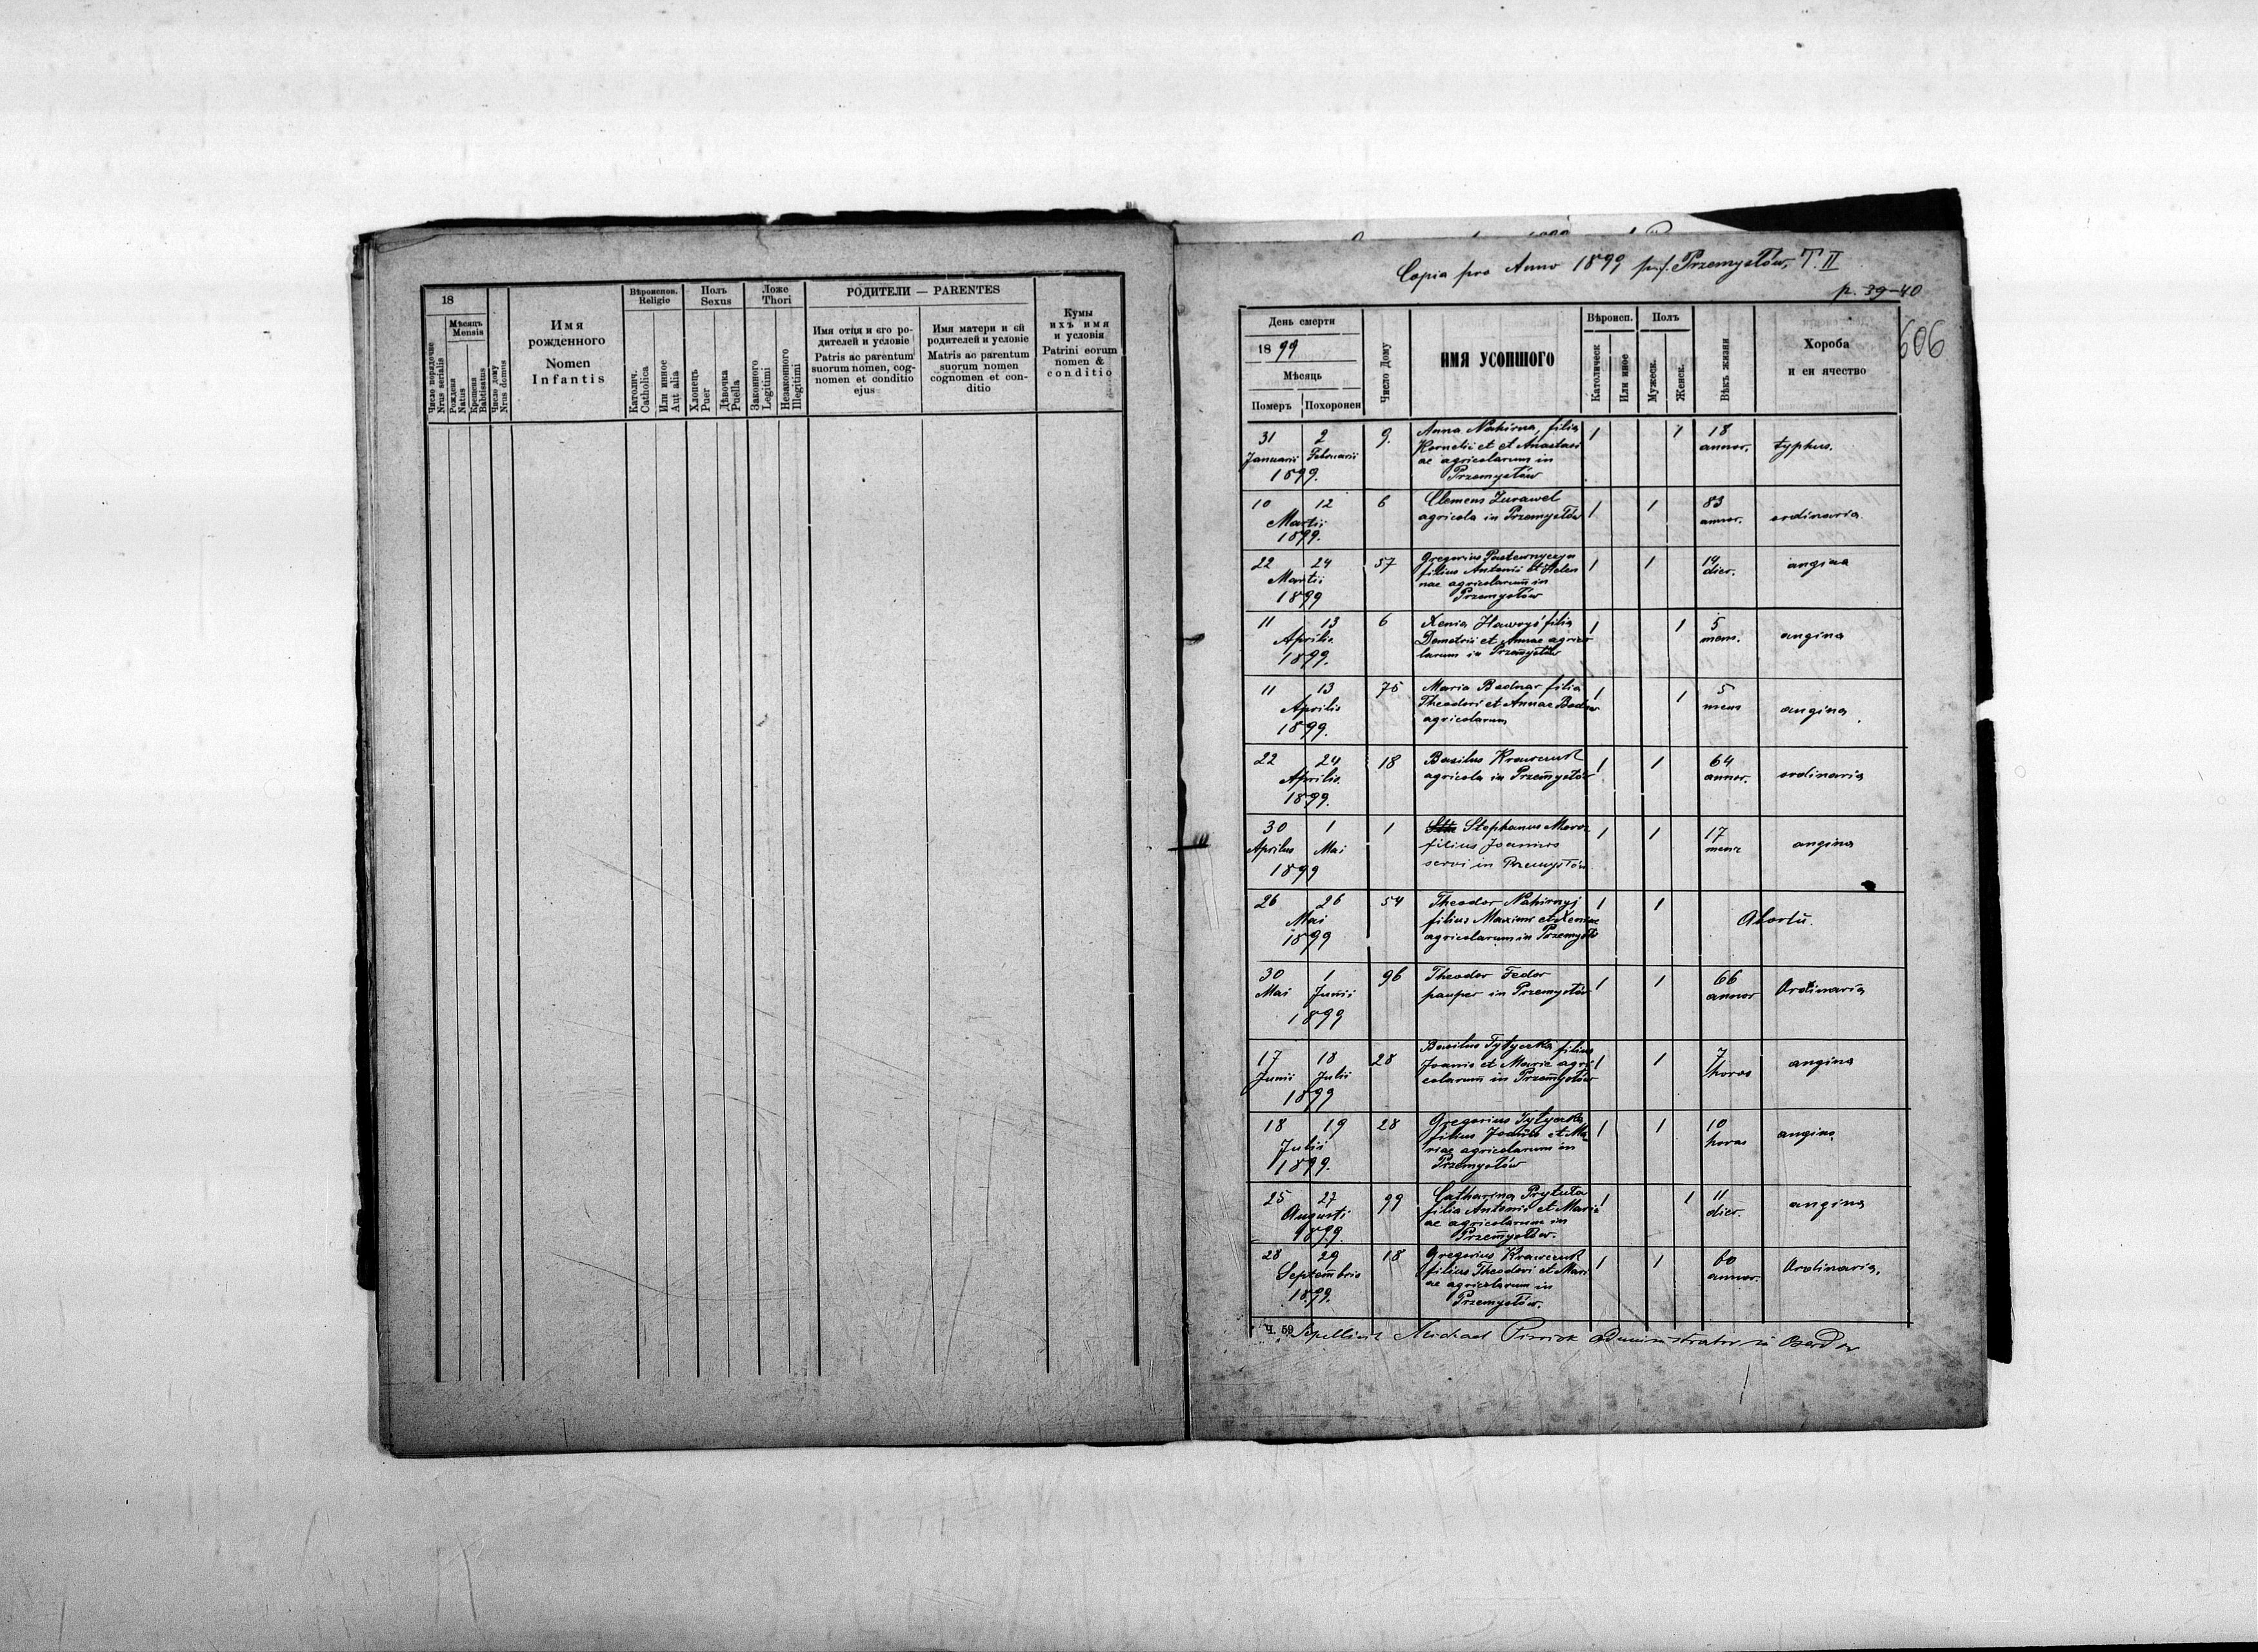 18
Мѣсяць
Mensis
Число порядочне
Nrus serialis
Рожденя
Natus
Крещеня
Babtisatus
Число дому
Nrus domus
Имя
рожденного
Nomen
Infantis
Вѣроиспов.
Religio
Католич.
Catholica
Или инное
Aut alia
Полъ
Sexus
Хлопець
Puer
Дѣвочка
Puella
Ложе
Thori
Законного
Legitimi
Незаконного
Illegitimi
РОДИТЕЛИ — PARENTES
Имя отця и его ро-
дителей и условіе
Patris ac parentum
suorum nomen, cog-
nomen et conditio
ejus
Имя матери и єй
родителей и условіе
Matris ac parentum
suorum nomen
cognomen et con-
ditio
Кумы
ихъ имя
и условія
Patrini eorum
nomen &
conditio
Copia pro Anno 1899 Przemysłów, T. II
p. 39-40
606
День смерти
1899
Мѣсяць
Померъ Похоронен
Число Дому
ИМЯ УСОПШОГО
Вѣроисп.
Католическ
Или иное
Полъ
Мужеск.
Женск.
Вѣкъ жизни
Хороба
и еи ячество
31 2 9. Anna Nahirna, filia 1 1 18 typhus.
Januarii Februarii Kornelii et et Anastasi annor.
ae agricolarum in
1899. Przemysłów
10 12 6 Clemens Zurawel 1 1 83 ordinaria
Martii agricola in Przemysłów annor.
1899.
22 24 57 Gregorius 1 1 14 angina
Martii filius Antonii et Helen dier.
nae agricolarum in
1899 Przemysłów
11 13 6 Xenia filia 1 1 5 angina
Aprilis Demetrii et Annae agrico mens.
1899. larum in Przemysłów
11 13 75 Maria Bednar filia 1 1 5 angina
Aprilis Theodori et Annae Bednar mens
1899. agricolarum
22 24 18 Basilus Krawczuk 1 1 64 ordinaria
Aprilis agricola in Przemysłów annor.
1899.
30 1 1 Stephanus Moroz 1 1 17 angina
Aprilis Mai filius Joannis mens
1899 servi in Przemysłów
26 26 54 Theodor Nahirnyj 1 1 Abortū.
Mai filius Maximi et Xeniae
1899 agricolarum in Przemysłó
30 1 96 Theodor Fedor 1 1 66 Ordinaria
Mai Junii pauper in Przemysłów annor
1899
17 18 28 Basilus Tytyczka filius 1 1 7 angina
Junii Julii Joanis et Marie agri horas
1899 colarum in Przemysłów
18 19 28 Gregorius Tytyczka 1 1 10 angina
Julii filius Joanis et Ma- horas
1899. riae agricolarum in
Przemysłów
25 27 99 Catharina Prytuła 1 1 11 angina
Augusti filia Antonii et Mari dier.
1899. ae agricolarum in
Przemysłów.
28 29 18 Gregorius Krawczuk 1 1 60 Ordinaria.
Septembris filius Theodori et Mari annor.
1899. ae agricolarum in
Przemysłów.
Ч. 59 Michael administrator in